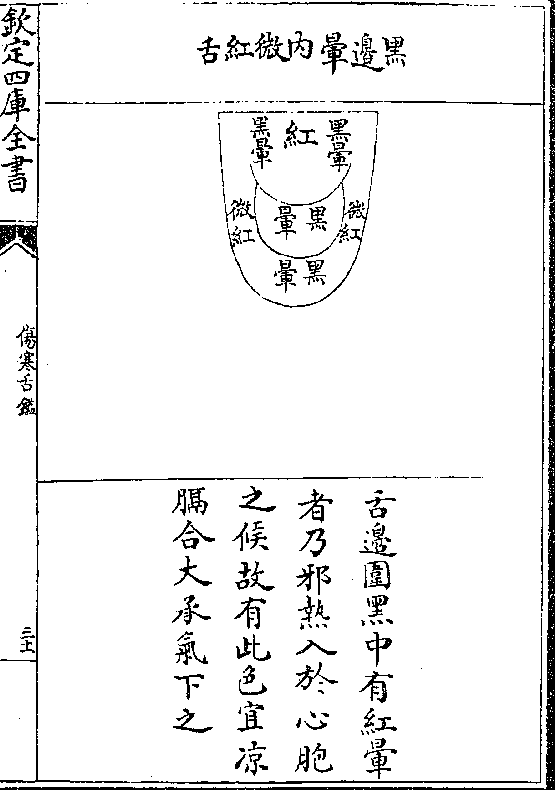 黑邊暈內微紅舌
黑暈
紅
黑暈
微紅
黑暈
微紅
黑暈
舌邊圍黑中有紅暈
者乃邪熱入於心胞
之候故有此色宜凉
膈合大承氣下之
欽定四庫全書
傷寒舌鑑